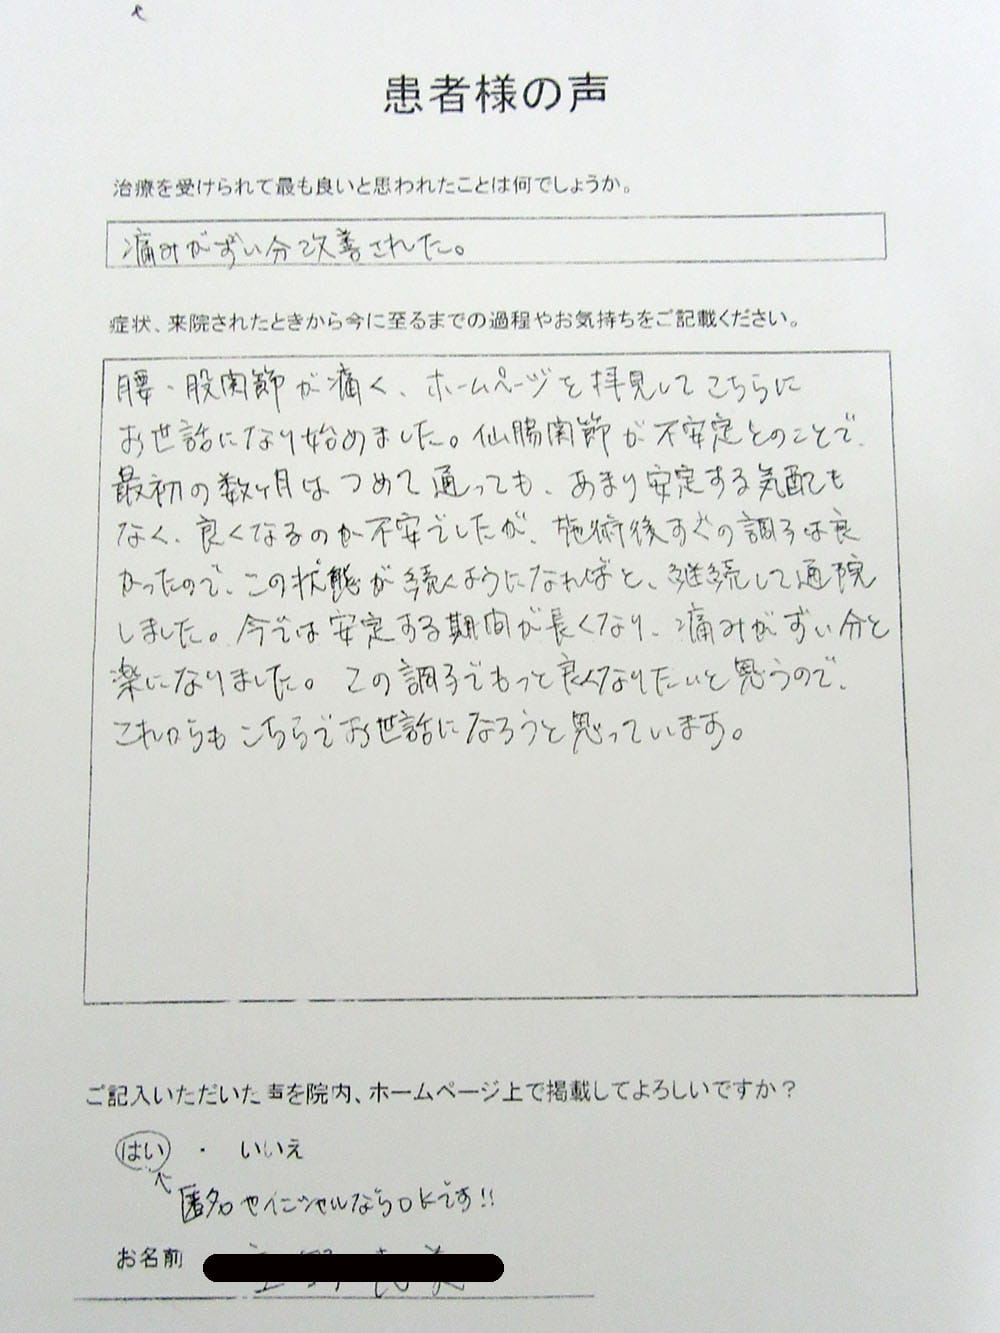 患者様の声
治療を受けられて最も良いと思われたことは何でしょうか。
痛みがずい分改善された。
症状、来院されたときから今に至るまでの過程やお気持ちをご記載ください。
腰・股関節が痛く、ホームページを拝見してこちらに
お世話になり始めました。仙腸関節が不安定とのことで、
最初の数ヶ月はつめて通っても、あまり安定する気配も
なく、良くなるのか不安でしたが、施術後すぐの調子は良
かったので、この状態が続くようになればと、継続して通院
しました。今では安定する期間が長くなり、痛みがずい分と
楽になりました。この調子でもっと良くなりたいと思うので、
これからもこちらでお世話になろうと思っています。
ご記入いただいた声を院内、ホームページ上で掲載してよろしいですか？
はい ・ いいえ
匿名やイニシャルならOKです!!
お名前